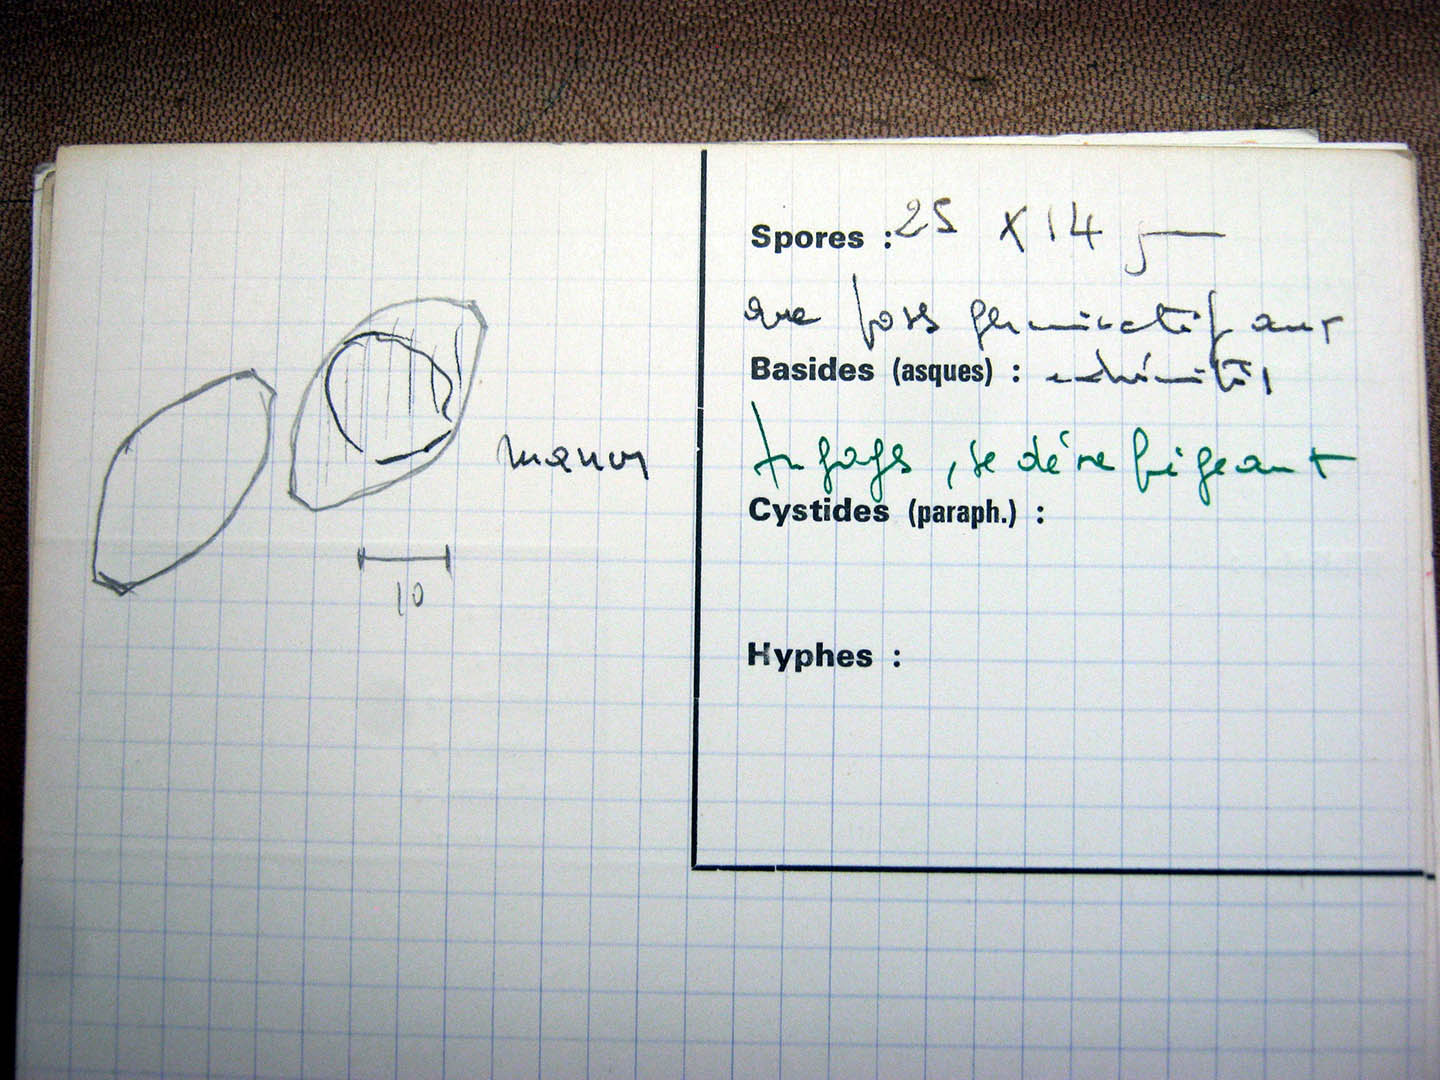 Spores : 25 X 14 μ
avec pores germinatif aux
Basides (asques) : extrémités
fugaces, se désagrégeant
Cystides (paraph.) :
Hyphes :
marron
10